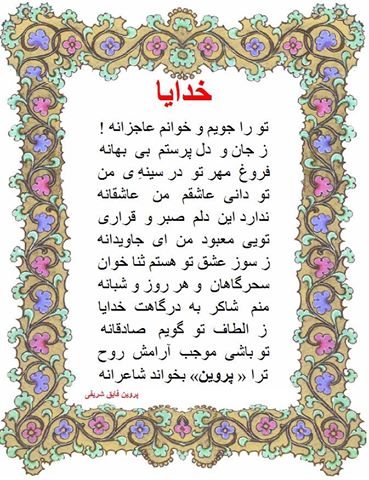 خدایا
تو را جویم و خوانم عاجزانه !
ز جان و دل پرستم بی بهانه
فروغ مهر تو در سینهٔ ی من
تو دانی عاشقم من عاشقانه
ندارد این دلم صبر و قراری
تویی معبود من ای جاویدانه
ز سوز عشق تو هستم ثنا خوان
سحرگاهان و هر روز و شبانه
منم شاکر به درگاهت خدایا
ز الطاف تو گویم صادقانه
تو باشی موجب آرامش روح
ترا « پروین» بخواند شاعرانه
پروین فایق شریفی